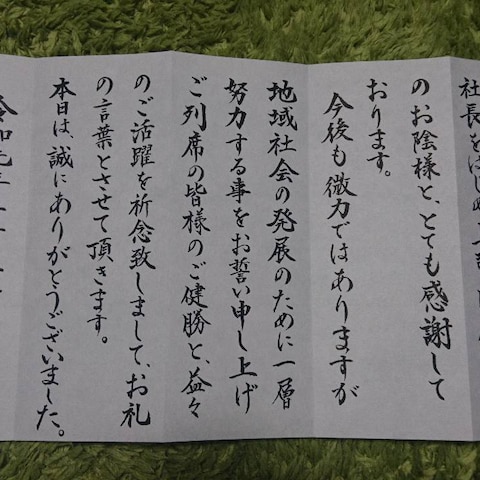 社長をはじめ
のお陰様と、とても感謝して
おります。
今後も微力ではありますが
地域社会の発展のために一層
努力する事をお誓い申し上げ
ご列席の皆様のご健勝と、益々
のご活躍を祈念致しまして、お礼
の言葉とさせて頂きます。
本日は、誠にありがとうございました。
令和元年